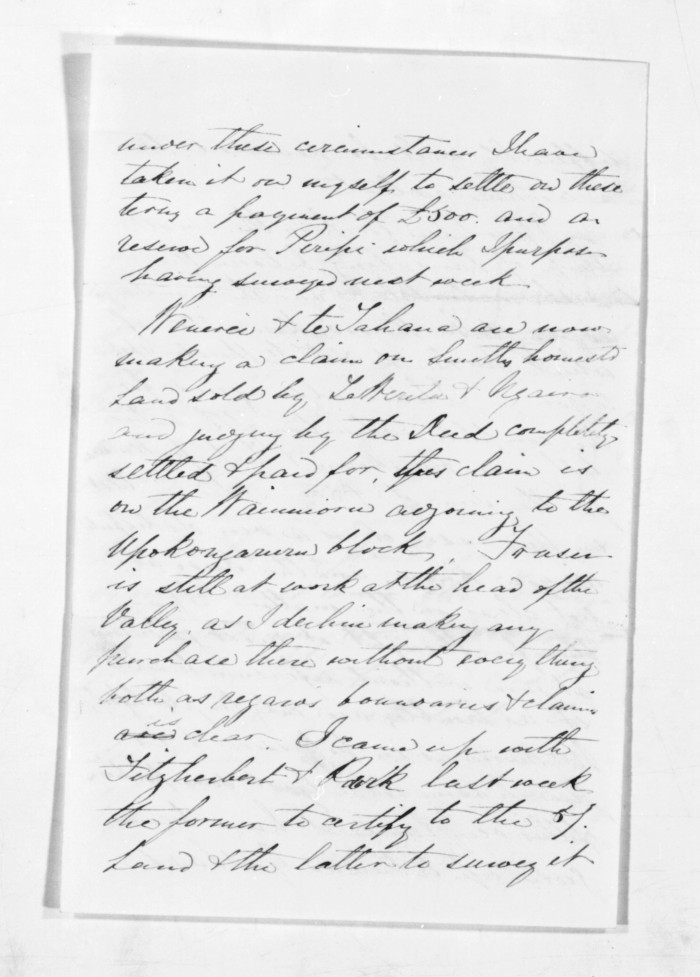 under these circumstances I have
taken it on myself to settle on these
terms a payment of £500. and a
reserve for Piripi which I purpose
having surveyed next week
Wenerei & te Tahana are now
making a claim on Smiths homestd
Land sold by & Ngaira
and judging by the Deed completely
settled & paid for, this claim is
on the Wainuioru adjoining to the
Upokongaruru block, Fraser
is still at work at the head of the
Valley. as I decline making any
purchase there without everything
both as regards boundaries & claims
is clear. I came up with
Fitzherbert & Park last week
the former to certify to the 5/.
Land & the latter to survey it